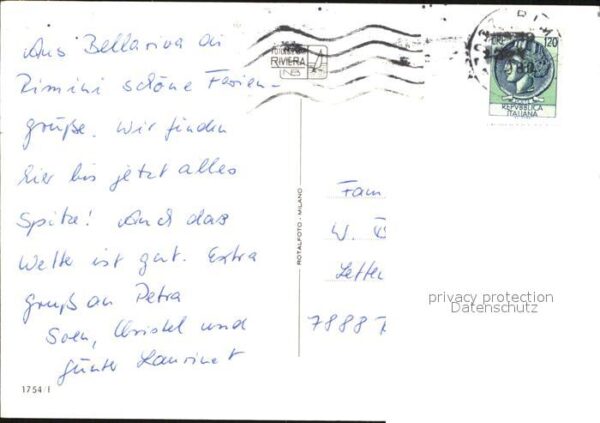 Aus Bellariva di
Rimini schöne Ferien-
grüße. Wir finden
hier bis jetzt alles
Spitze! Auch das
Wetter ist gut. Extra
Gruß an Petra
Sven, Christel und
Günter
RIVIERA
LIRE 120
REPVBBLICA
ITALIANA
ROTALFOTO - MILANO
Fam
W.
7888
privacy protection
Datenschutz
1754/I